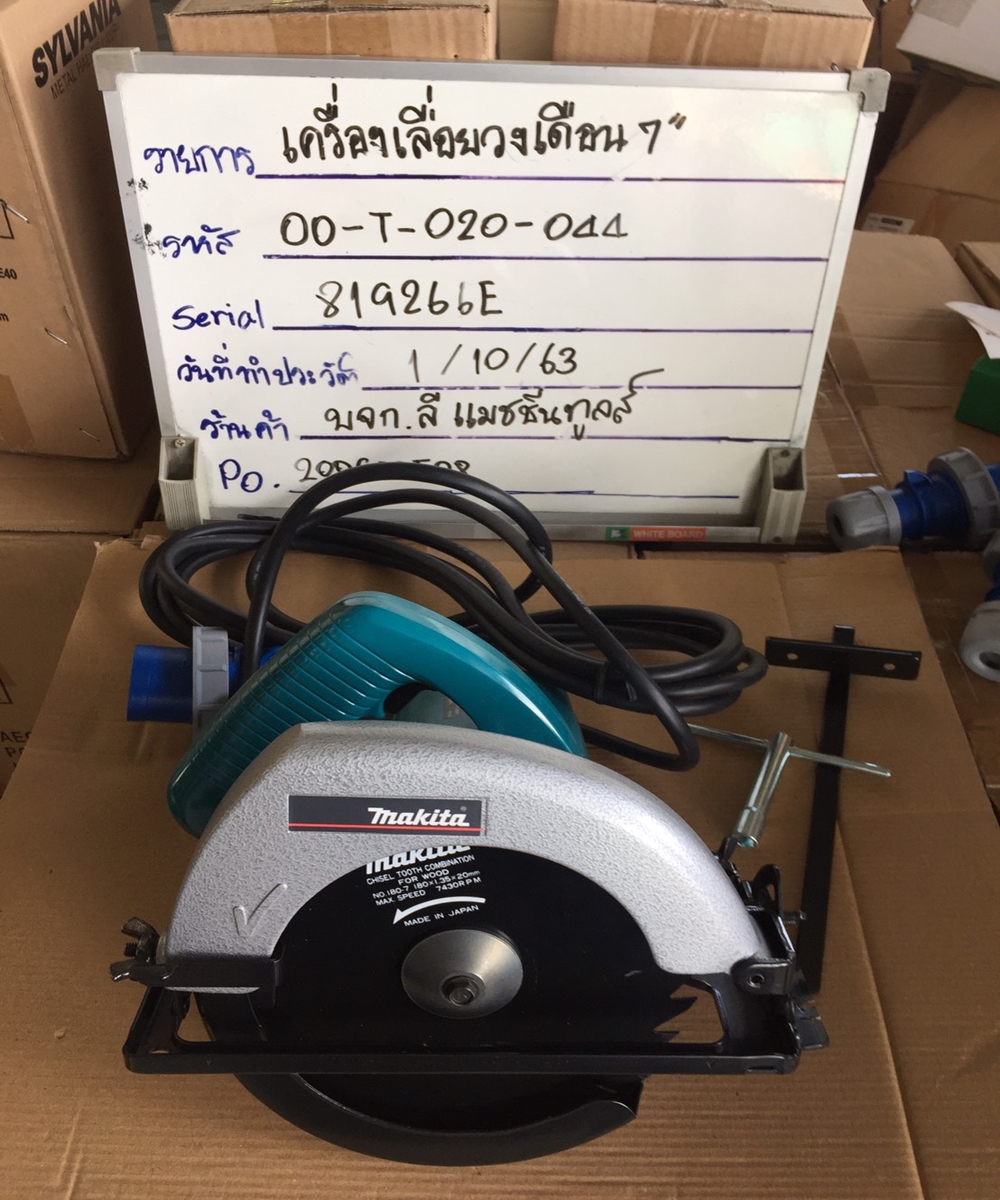 SYLVANIA
METAL
รายการ เครื่องเลื่อยวงเดือน 7"
รหัส 00-T-020-044
Serial 819266E
วันที่ทำประวัติ 1/10/63
ร้านค้า บจก.ลี แมชชีนทูลส์
PO.
WHITE BOARD
E40
makita
makita
CHISEL TOOTH COMBINATION
FOR WOOD
NO.180-7 180×1.35×20mm
MAX. SPEED 7430RPM
MADE IN JAPAN